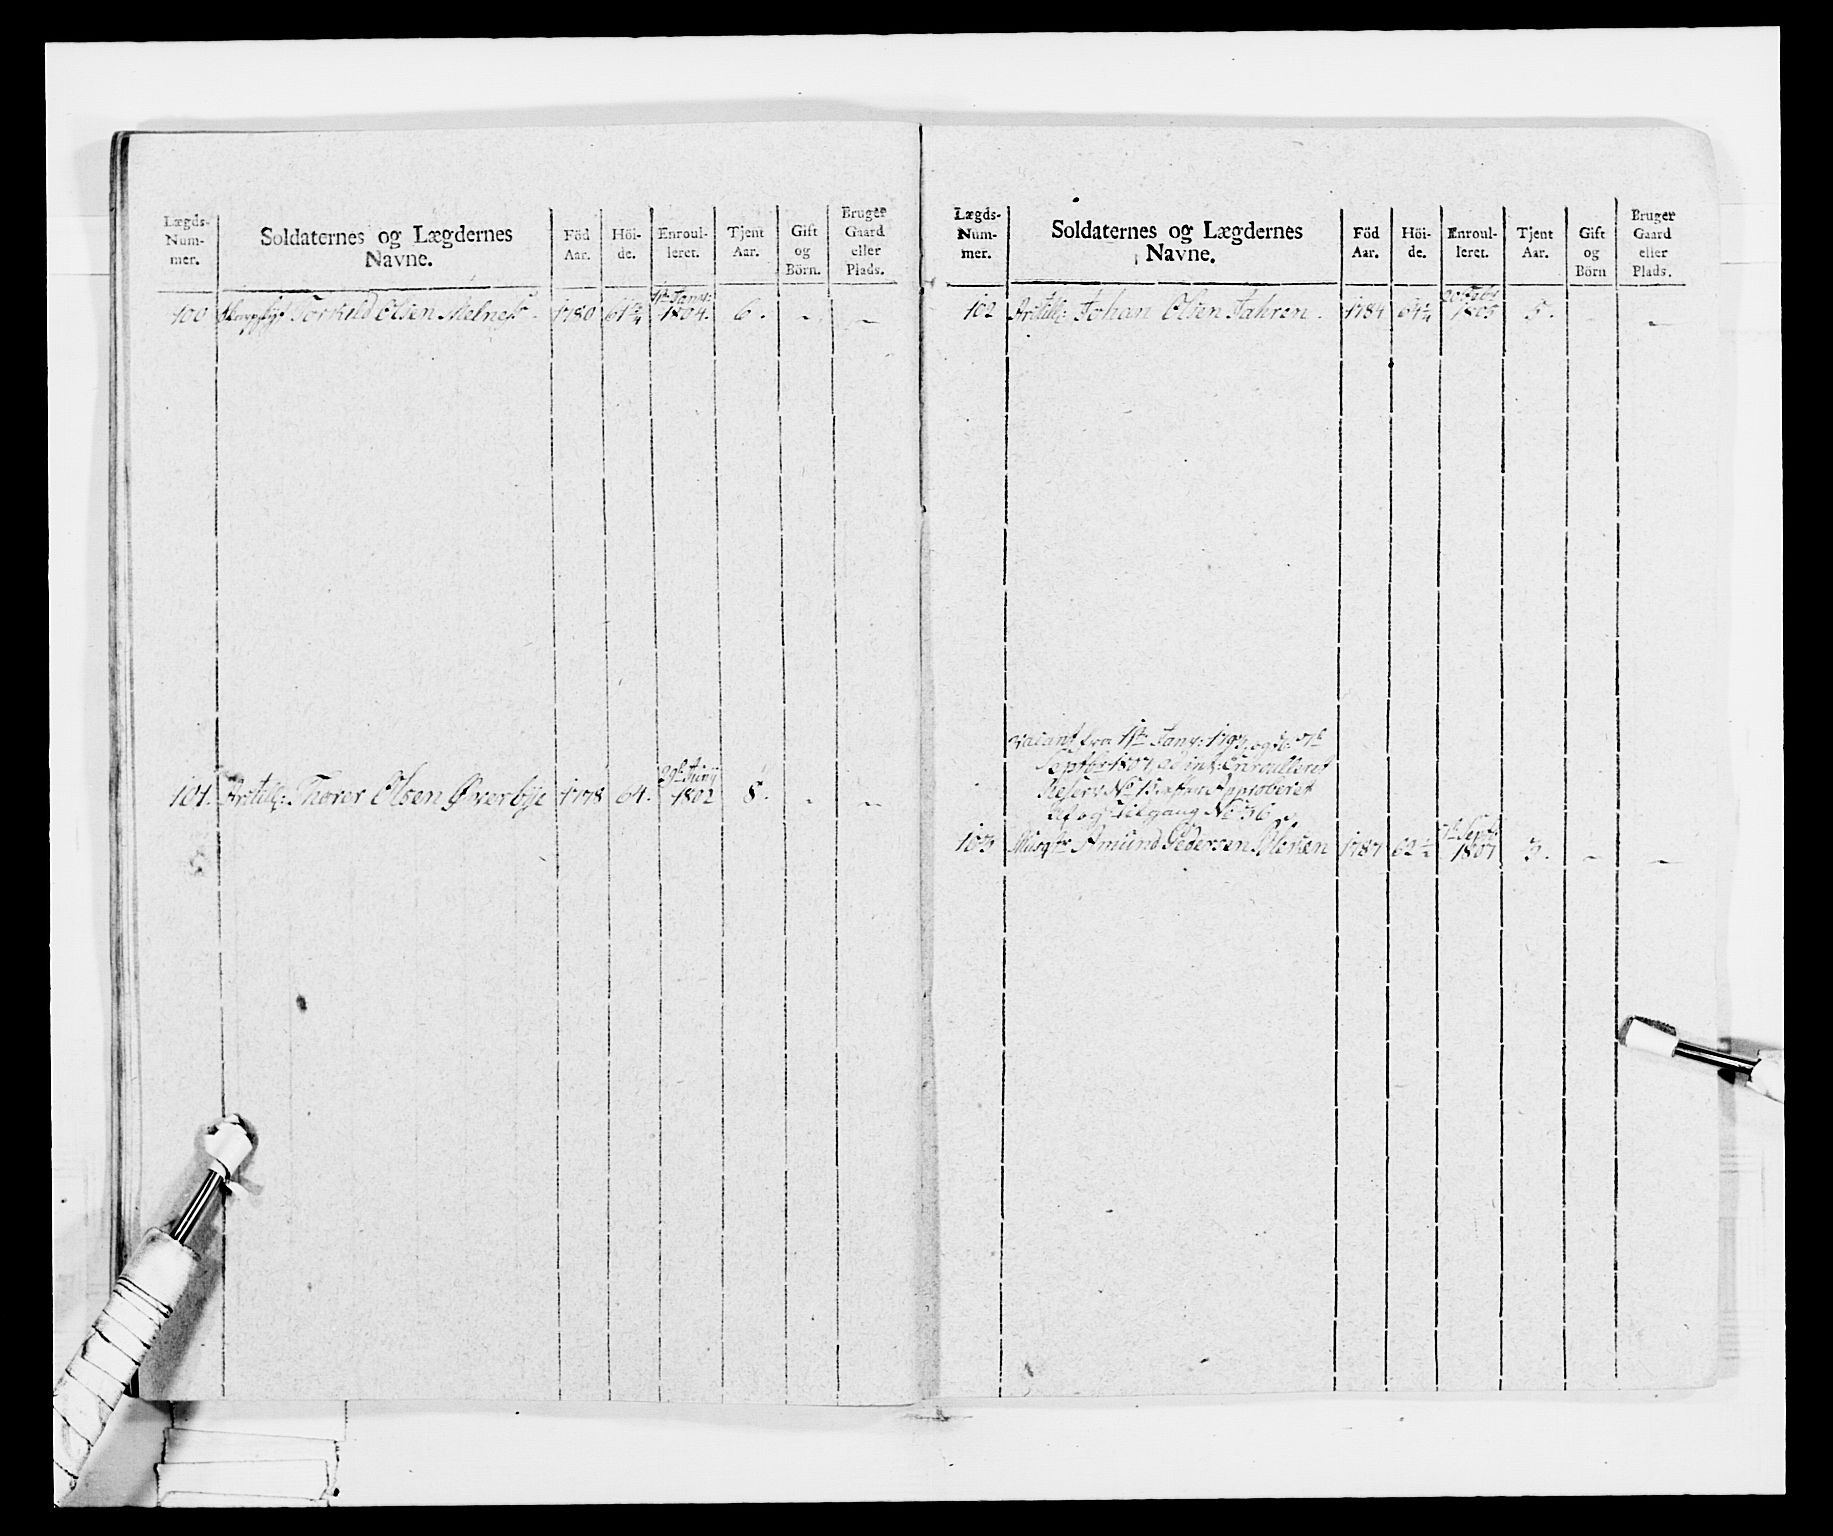 Lægds- Num- mer.
Soldaternes og Lægdernes Navne.
Föd Aar.
Höi- de.
Enroul- leret.
Tjent Aar.
Gift og Börn.
Bruger Gaard eller Plads.
100 Torkild Olsen Melnes 1780 61 3/4 1ste Janv: 1804. 6. - -
101. Artill: Thorer Olsen Øverbye 1778 64. 29de Junij 1802 8. - -
Lægds- Num- mer.
Soldaternes og Lægdernes Navne.
Föd Aar.
Höi- de.
Enroul- leret.
Tjent Aar.
Gift og Börn
Bruger Gaard eller Plads.
102 Artill: Johan Olsen Fahren. 1784 1805 5. - -
Vacant fra 1ste Janv: 1797. og til 7de
Septbr 1807, da Enroulleret
Reserv No 13 efter Approberet
Af og Tilgang No 36
103 Musqtr Amund Pedersen 1787 62 1/2 7de Septb: 1807 3. - -